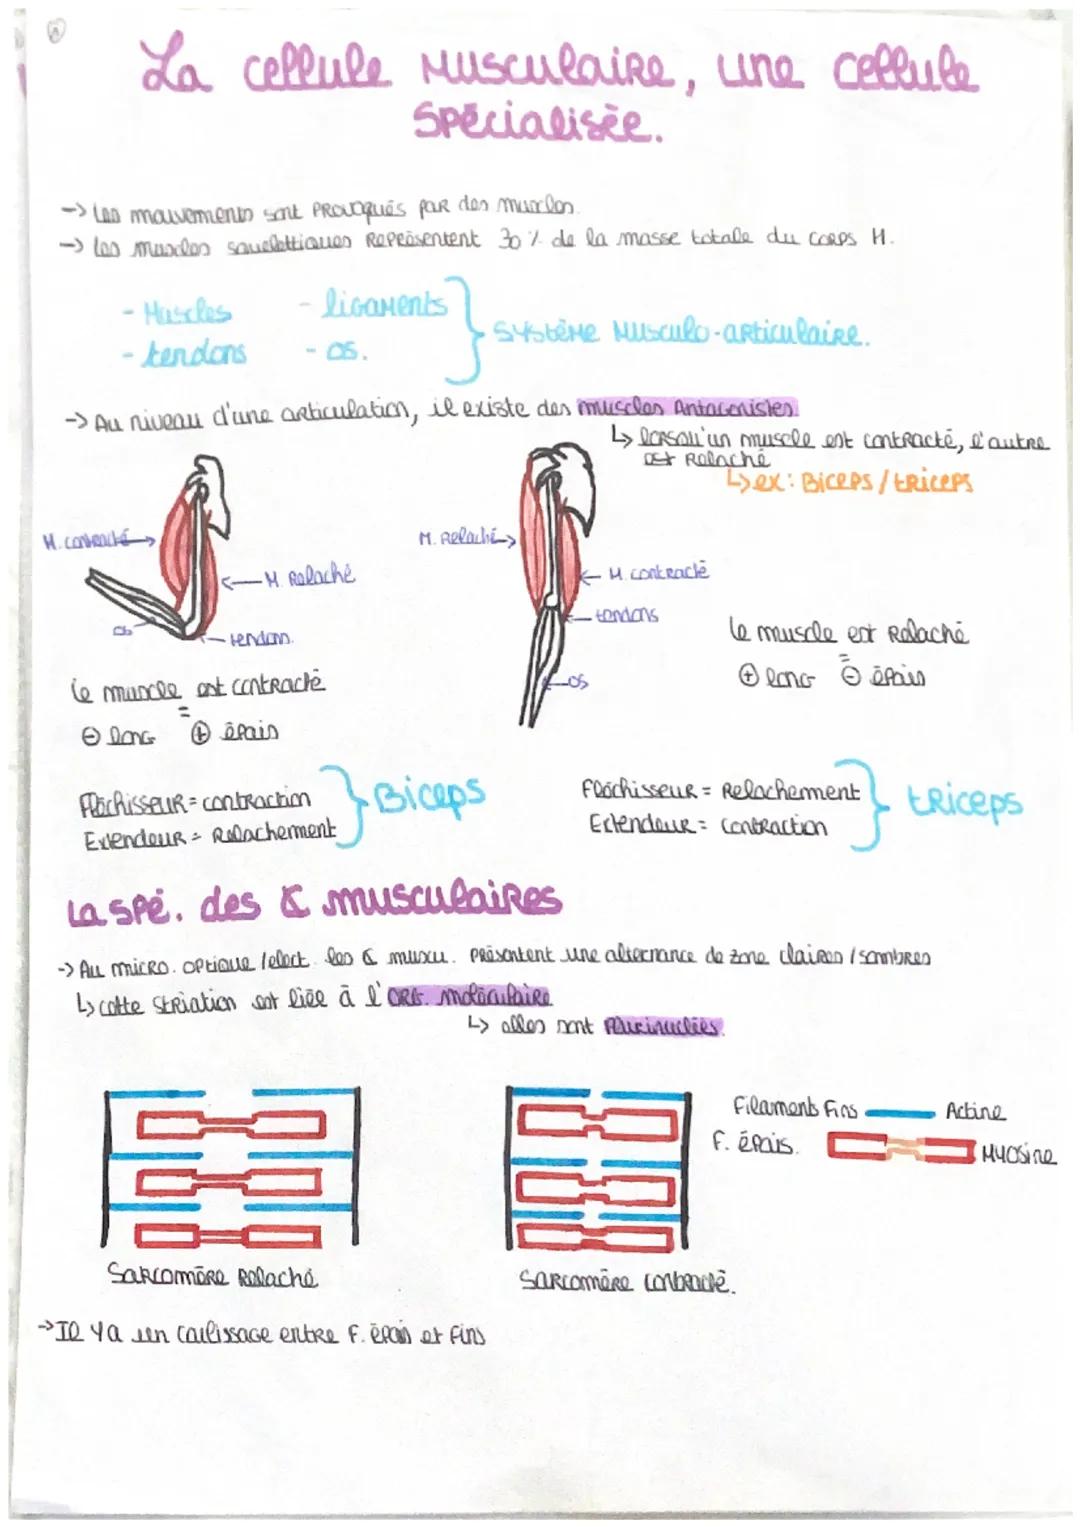 La cellule musculaire, une cellule
spécialisée.
-> Les mouvements sont provoqués par des muscles.
-> les muscles squelettiques représentent 30 % de la masse totale du corps H.
- Muscles - ligaments
- tendons - os.
Système Musculo-articulaire.
-> Au niveau d'une articulation, il existe des muscles Antagonistes.
↳ lorsqu'un muscle est contracté, l'autre
est Relaché
↳ ex: Biceps / triceps
M. contracté
M. Relaché
os
tendon.
M. Relaché
M. contracté
tendons
os
le muscle est contracté
=
⊖ long ⊕ épais
le muscle est Relaché
=
⊕ long ⊖ épais
Fléchisseur = contraction
Extendeur = Relachement
Biceps
Fléchisseur = Relachement
Extendeur = contraction
triceps
La spé. des ₵ musculaires
-> Au micro. optique /elect. les ₵ muscu. présentent une alternance de zone claires / sombres
↳ cette striation est liée à l'org. moléculaire
↳ elles sont plurinuclées.
Filaments Fins Actine
F. épais. Myosine
Sarcomère Relaché
Sarcomère contracté.
-> Il y a un coulissage entre F. épais et fins